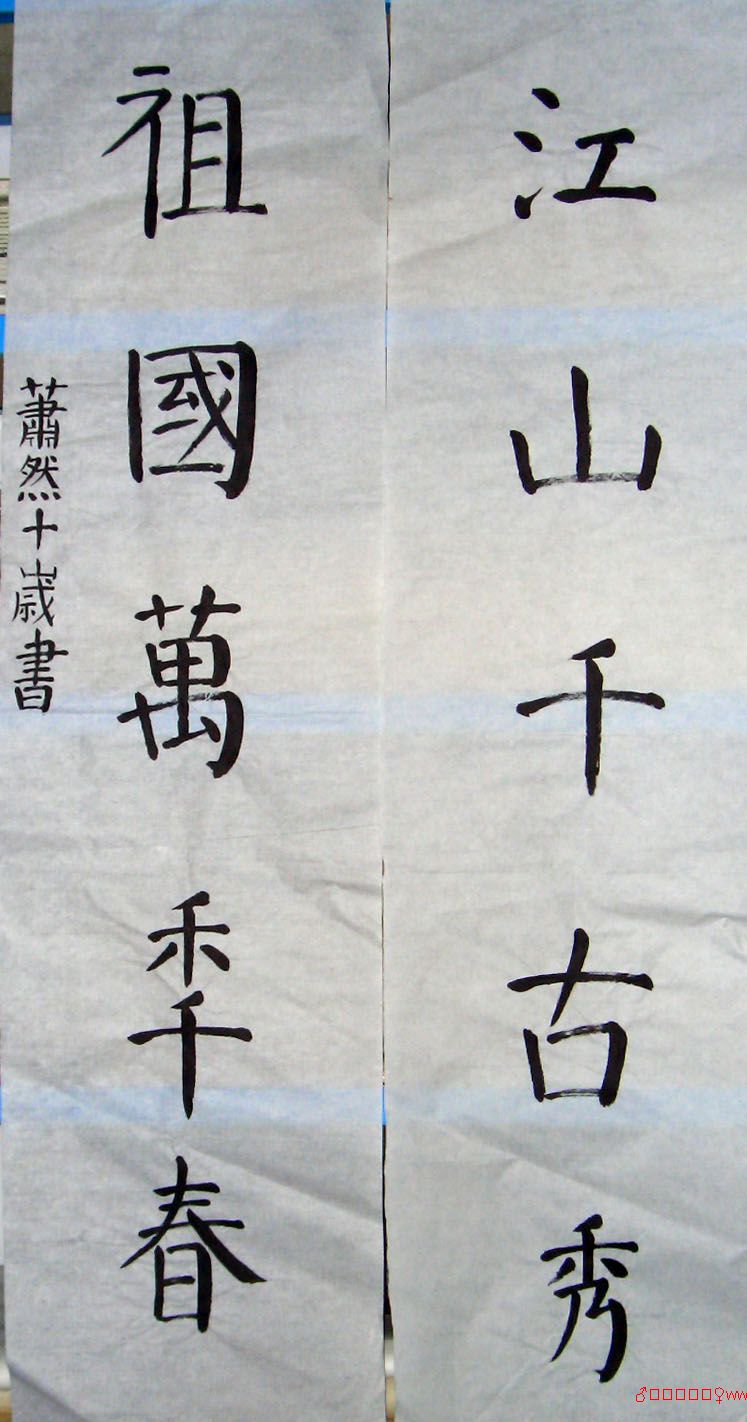 江山千古秀
祖國萬秊春
蕭然十歲書